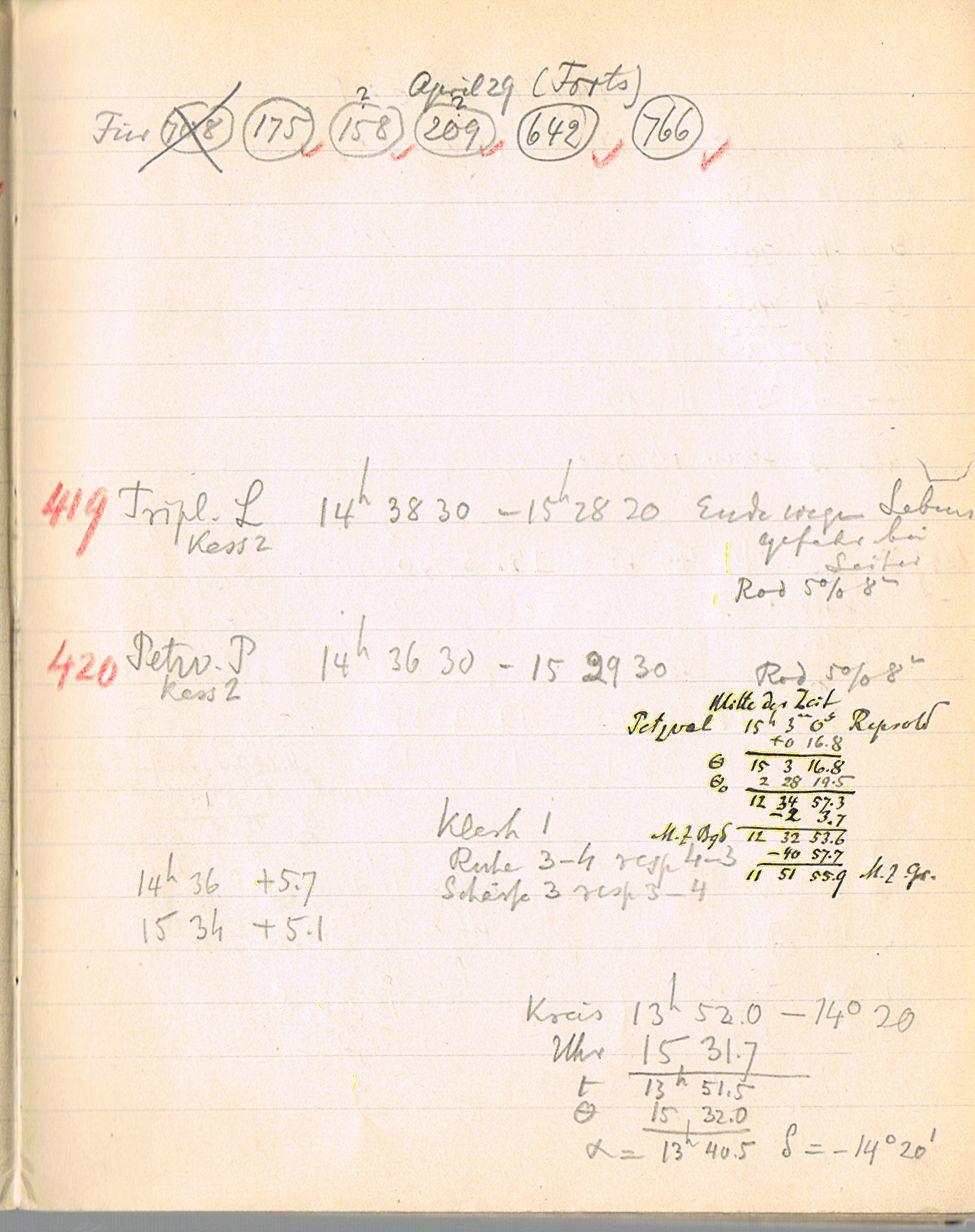 April 29 (Forts)
Für 708 175 158? 209? 642 766
419 Tripl. L 14h 38 30 – 15h 28 20 Ende wegen Lebens
Kass 2 gefahr bei
Rod 5% 8m
420 Petzv. P 14h 36 30 – 15 29 30 Rod. 5% 8m
Kass 2
Mitte der Zeit
Petzval 15h 3m 0s Repsold
+0 16.8
Θ 15 3 16.8
Θ₀ 2 28 19.5
12 34 57.3
–2 3.7
M.Z. Bgd 12 32 53.6
–40 57.7
11 51 55.9 M.Z. Gr.
Klarh 1
Ruhe 3–4 resp 4–3
Schärfe 3 resp 3–4
14h 36 +5.7
15 34 +5.1
Kreis 13h 52.0 – 14° 20
Uhr 15 31.7
t 13h 51.5
Θ 15 32.0
α = 13h 40.5 δ = –14° 20'